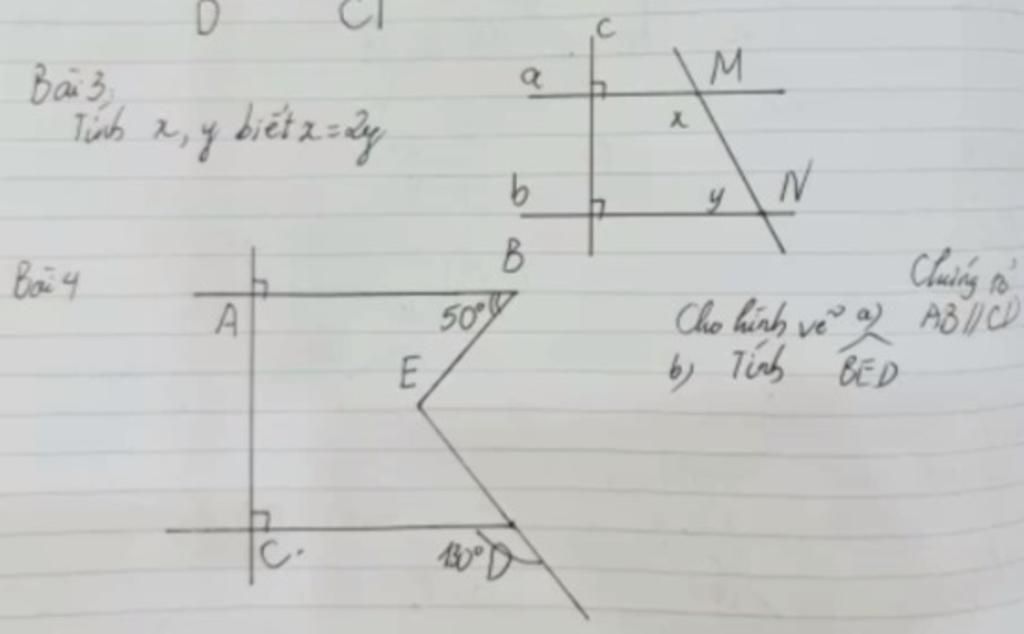 D Cl
Bài 3,
Tính x, y biết x = 2y
c
a M
x
b y N
Bài 4
B
A 50°
E
C. 130° D
Cho hình vẽ a) Chứng tỏ AB // CD
b) Tính BED